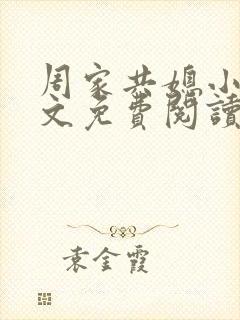 周家共媳小
文免費閱讀
袁金霞